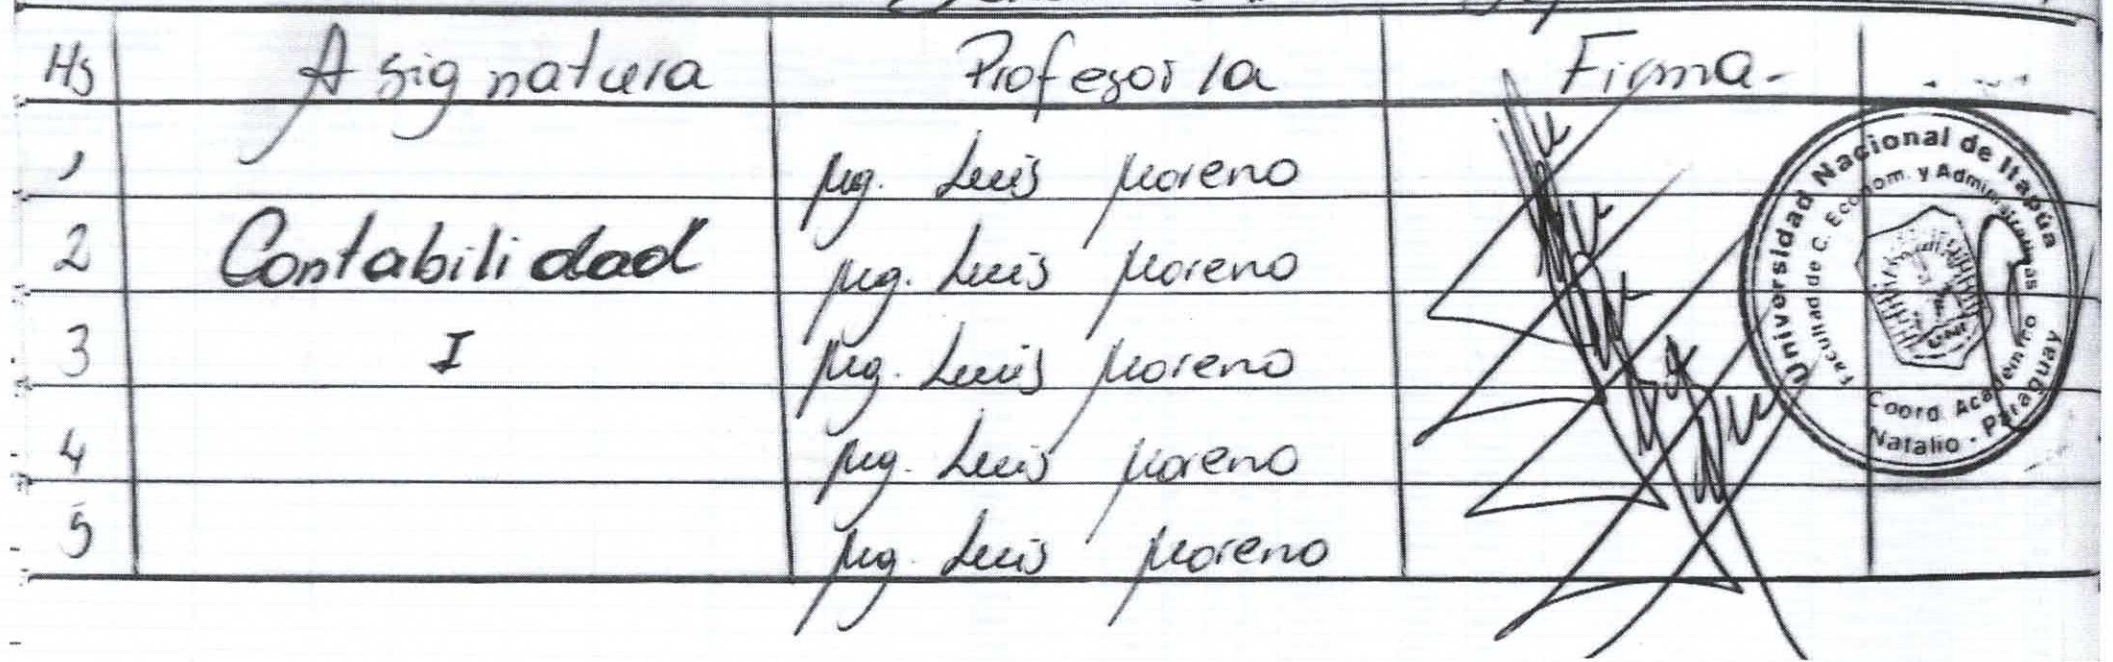 Hs Asignatura Profesor/a Firma
1 Mg. Luis Moreno
2 Contabilidad Mg. Luis Moreno
3 I Mg. Luis Moreno
4 Mg. Luis Moreno
5 Mg. Luis Moreno
Universidad Nacional de Itapúa
Facultad de C. Econom. y Administrativas
Coord. Académico
Natalio - Paraguay